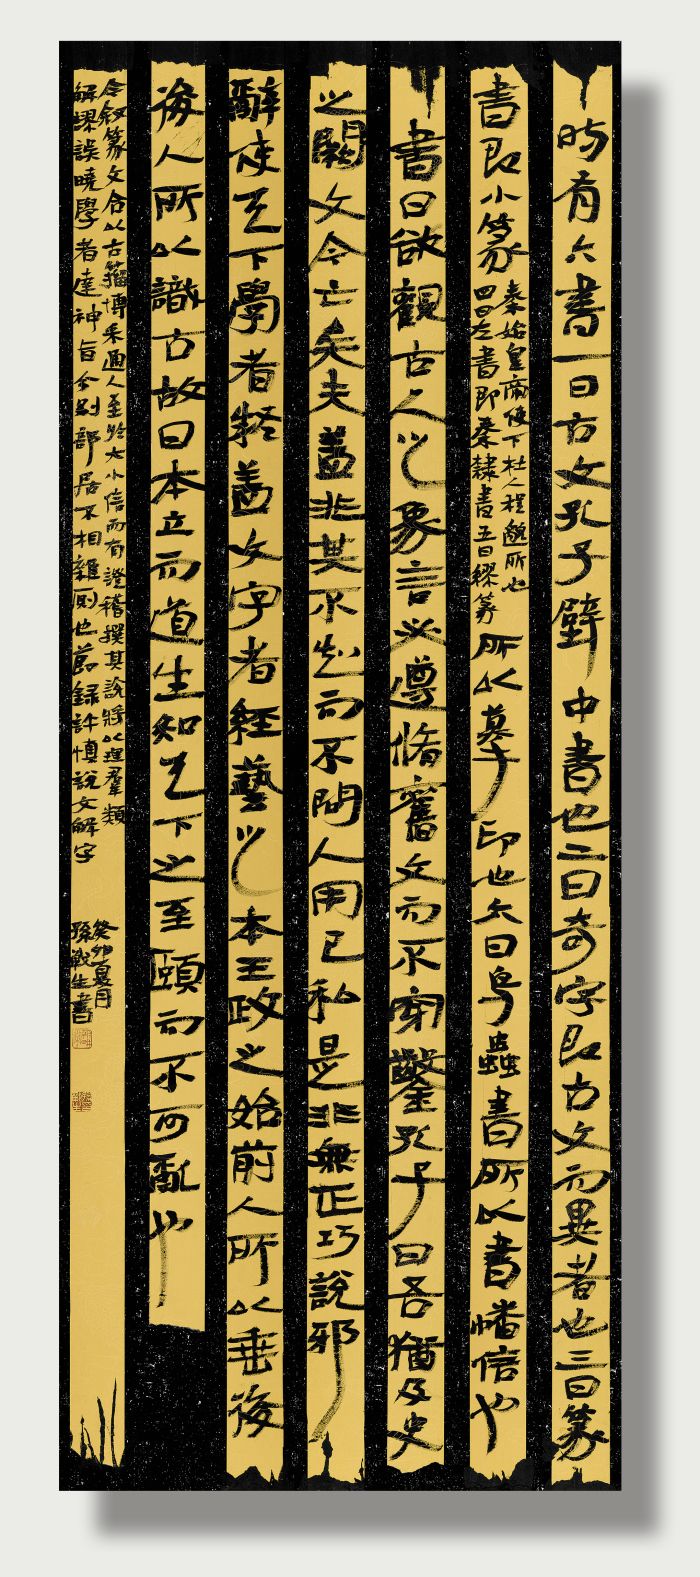 時有六書一曰古文孔子壁中書也二曰奇字即古文而異者也三曰篆
書即小篆
秦始皇帝使下杜人程邈所也
四曰左書即秦隸書五曰繆篆
所以摹印也六曰鳥蟲書所以書幡信也
書曰欲觀古人之象言必遵脩舊文而不穿鑿孔子曰吾猶及史
之闕文今亡矣夫蓋非其不知而不問人用己私是非無正巧說邪
辭使天下學者疑蓋文字者經藝之本王政之始前人所以垂後
後人所以識古故曰本立而道生知天下之至頤而不可亂也
今敘篆文合以古籀博采通人至於大小信而有證稽撰其說將以理羣類
解謬誤曉學者達神旨分別部居不相雜厠也節録許慎說文解字
癸卯夏月
孫戰生書